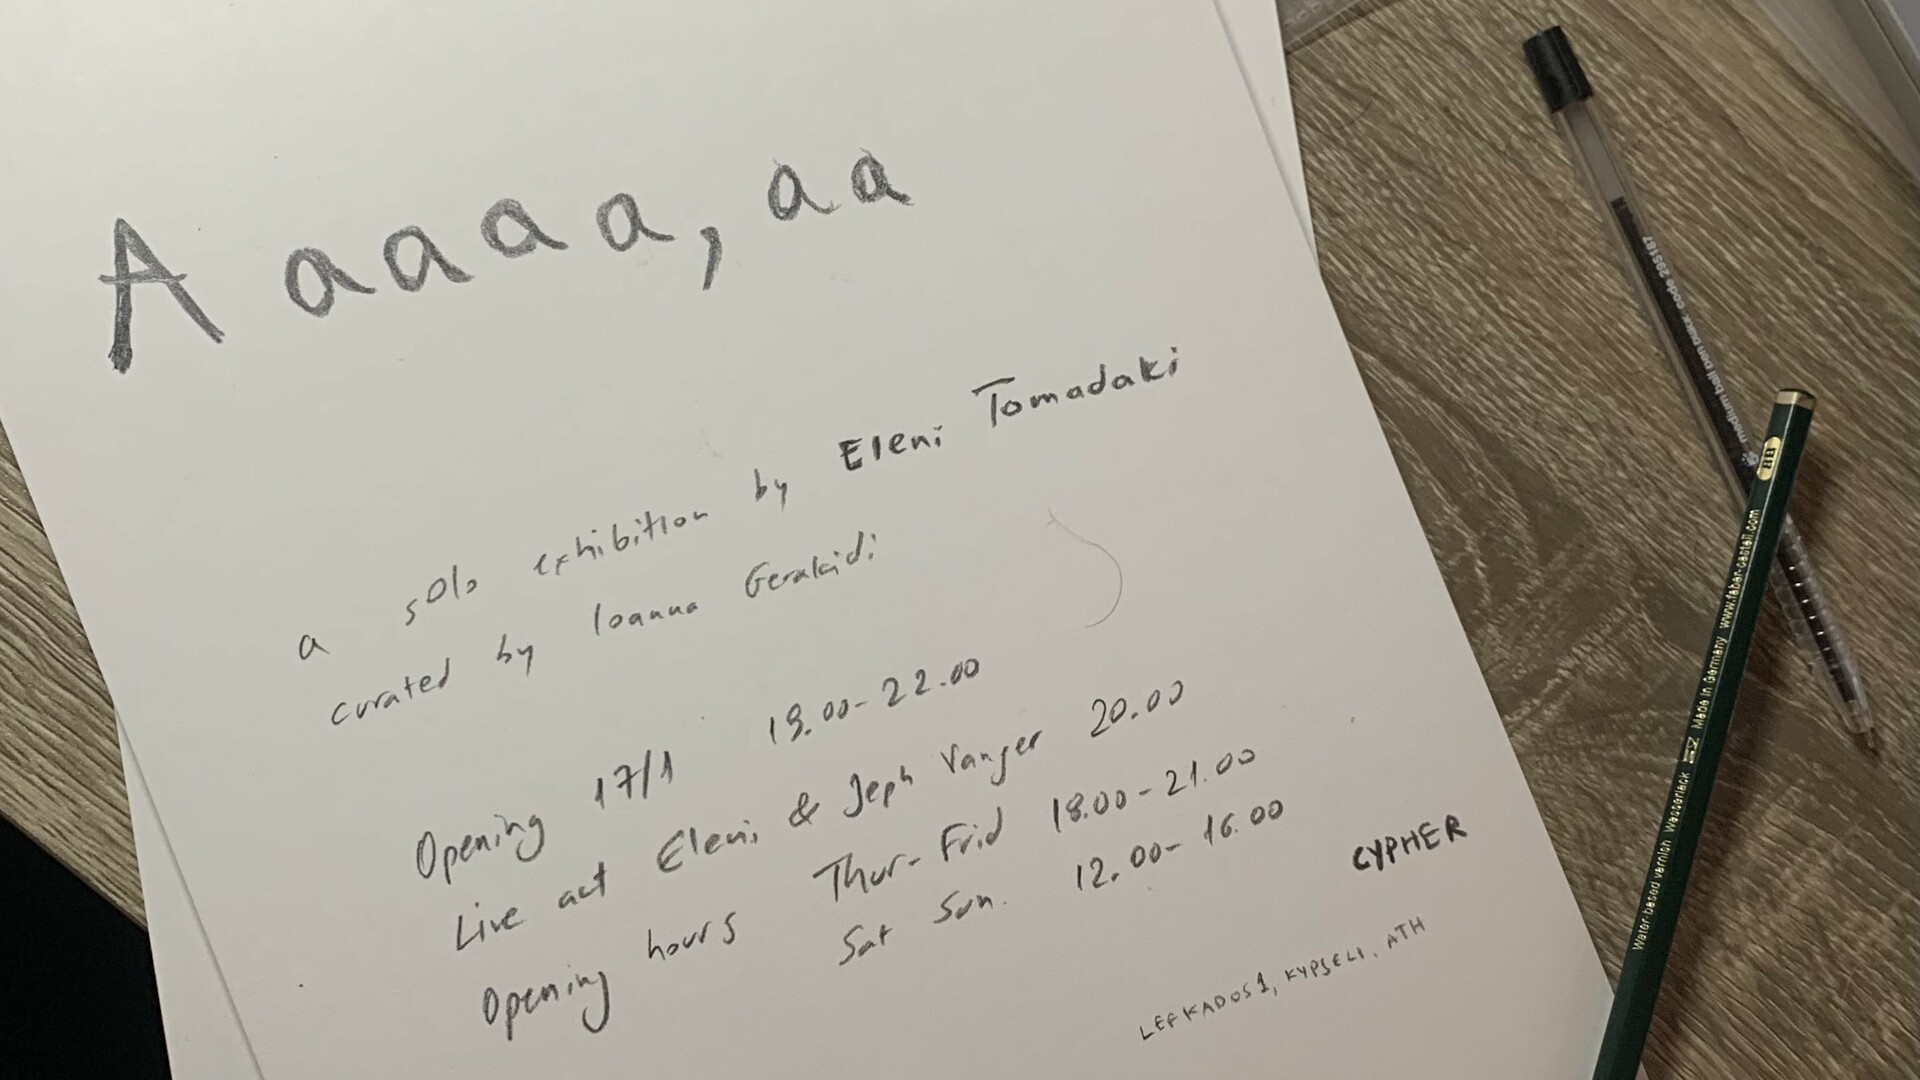 A a a a a, a a
a solo exhibition by Eleni Tomadaki
curated by Ioanna Gerakidi
Opening 17/1 19.00-22.00
Live act Eleni & Jeph Vanger 20.00
Opening hours Thur-Frid 18.00-21.00
Sat Sun. 12.00-16.00
CYPHER
LEFKADOS 1, KYPSELI, ATH
medium ball pen patax code 295187
8B
Water-based varnish Wasserlack Made in Germany www.faber-castell.com